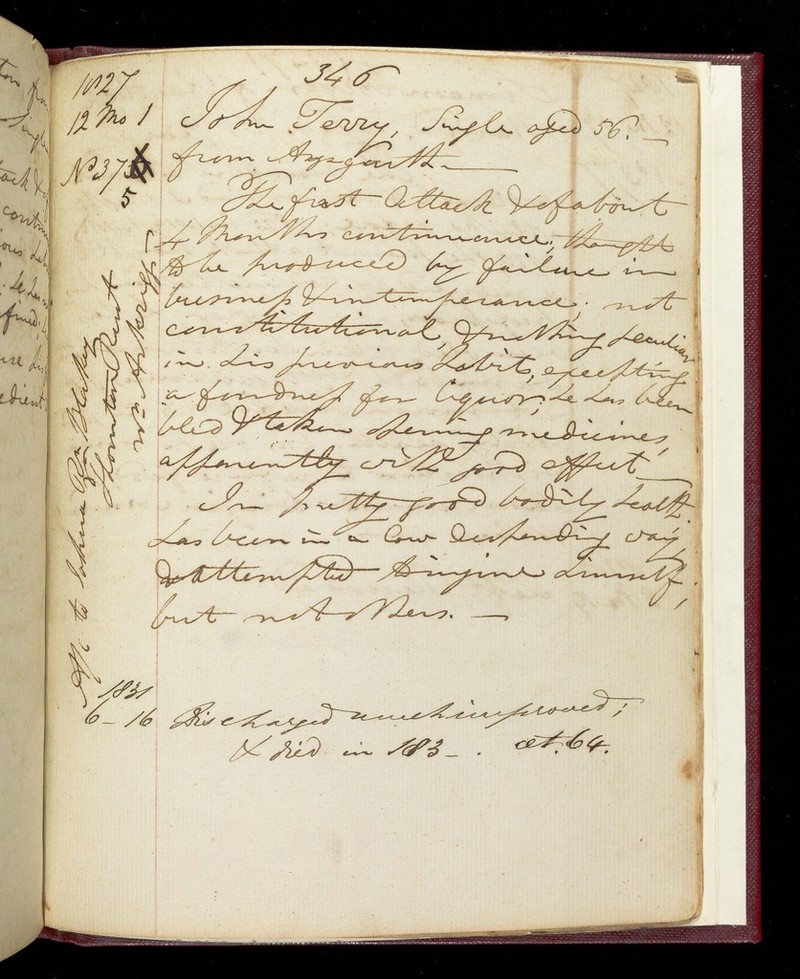 346
1827
12 Mo 1
No 373
5
John Terry, Single aged 56. —
from Aysgarth —
The first attack & of about
4 Months continuance; thought
to be produced by failure in
business & intemperance; not
constitutional, & nothing peculiar
in his previous habits, excepting
a fondness for liquor; he has been
bled & taken opening medicines,
apparently with good effect —
In pretty good bodily health
has been in a low desponding way,
& attempted to injure himself,
but not others. —
to Joshua Blakey
Thornton Rust
Wm
1831
6 – 16
Discharged much improved;
& died in 183– . æt. 64.